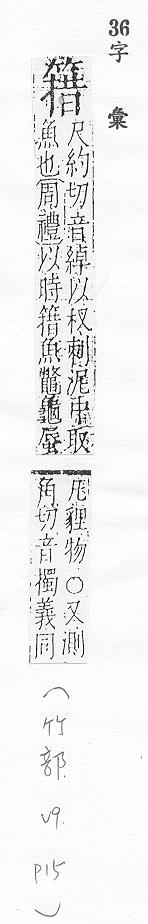 36
字彙
簎
尺約切音綽以杈刺泥中取
魚也周禮以時簎魚鼈龜蜃
凡貍物○又測
角切音擉義同
(竹部 v9. p15)